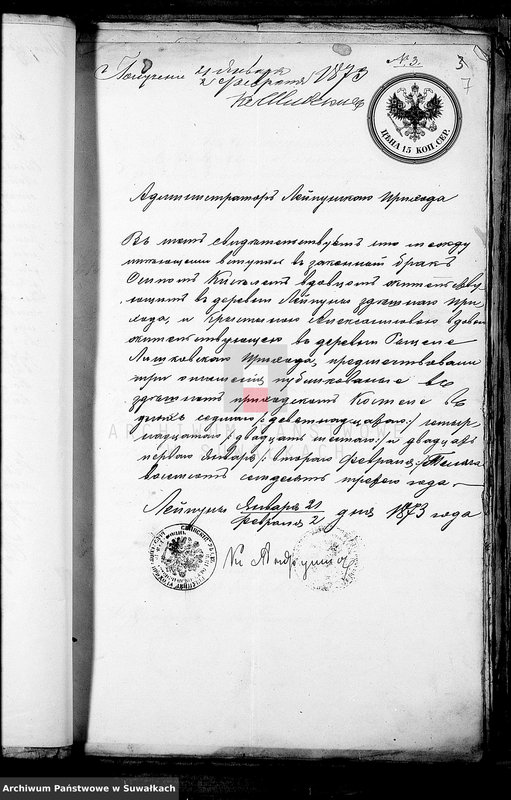 № 3.
3
7
Получено 21 Января
2 Февраля 1873
ЦѢНА 15 КОП. СЕР.
Администраторъ Лейпунскаго Прихода
Въ томъ свидѣтельствуетъ что между
имѣющими вступить въ законный бракъ
вдовцомъ жительству-
ющимъ въ деревнѣ Лейпуны здѣшняго При-
хода, и вдовою
жительствующею въ деревнѣ
Прихода, предшествовали
три оглашенія публикованые въ
здѣшнемъ приходскомъ Костеле въ
дняхъ седьмаго /:девятнадцатаго:/ четыр-
надцатаго /:двадцать шестаго:/ и двадцать
перваго Января /: втораго Февраля:/ Тысяча
восемьсотъ семьдесятъ третьяго года.
Лейпуны Января 21
Февраля 2 дня 1873 года
ARCHIWUM PAŃSTWOWE
Archiwum Państwowe w Suwałkach